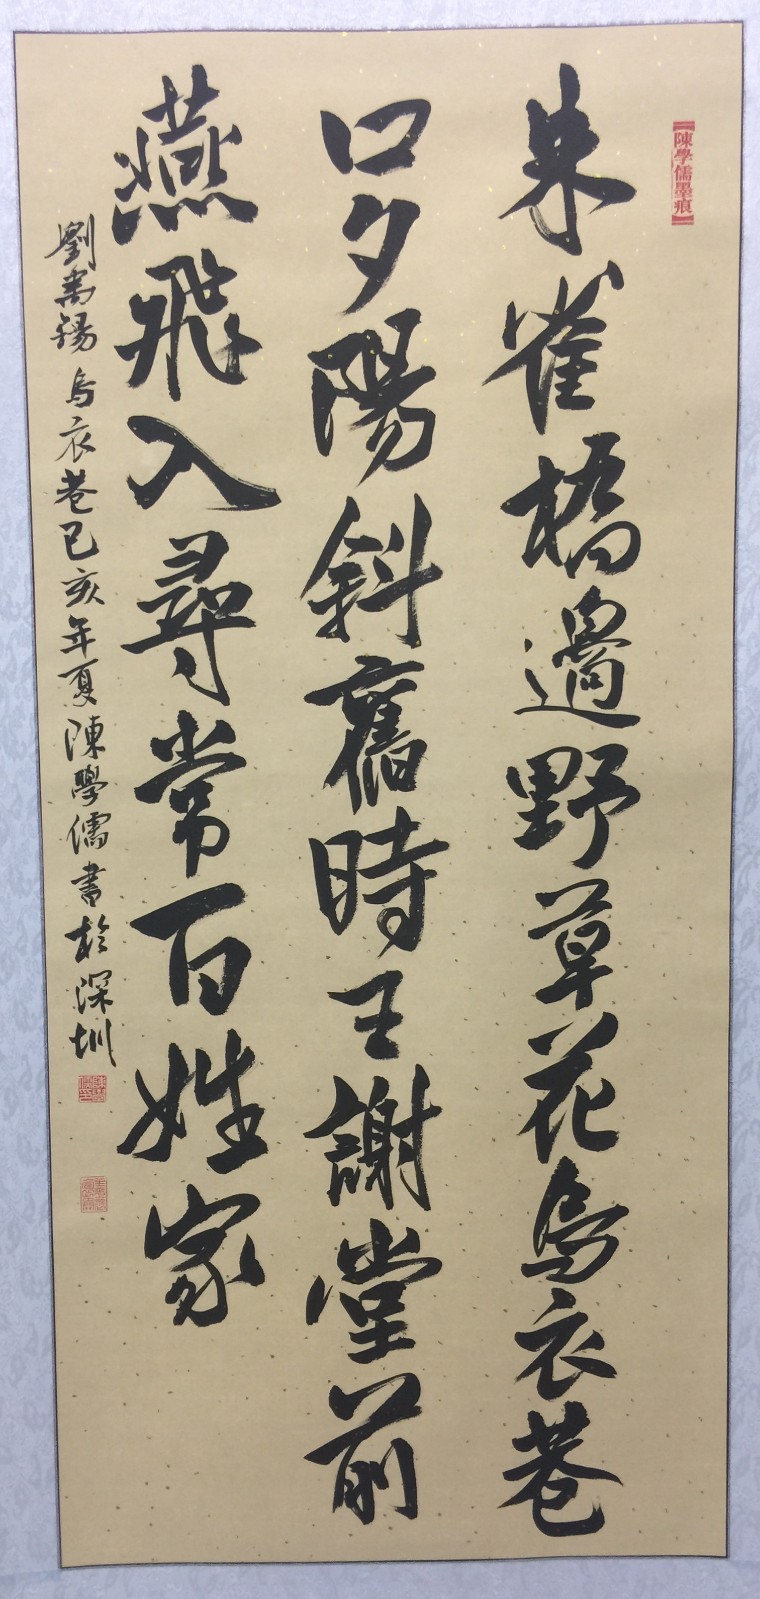 【陳學儒墨痕】
朱雀橋邊野草花烏衣巷
口夕陽斜舊時王謝堂前
燕飛入尋常百姓家
劉禹錫烏衣巷己亥年夏陳學儒書於深圳